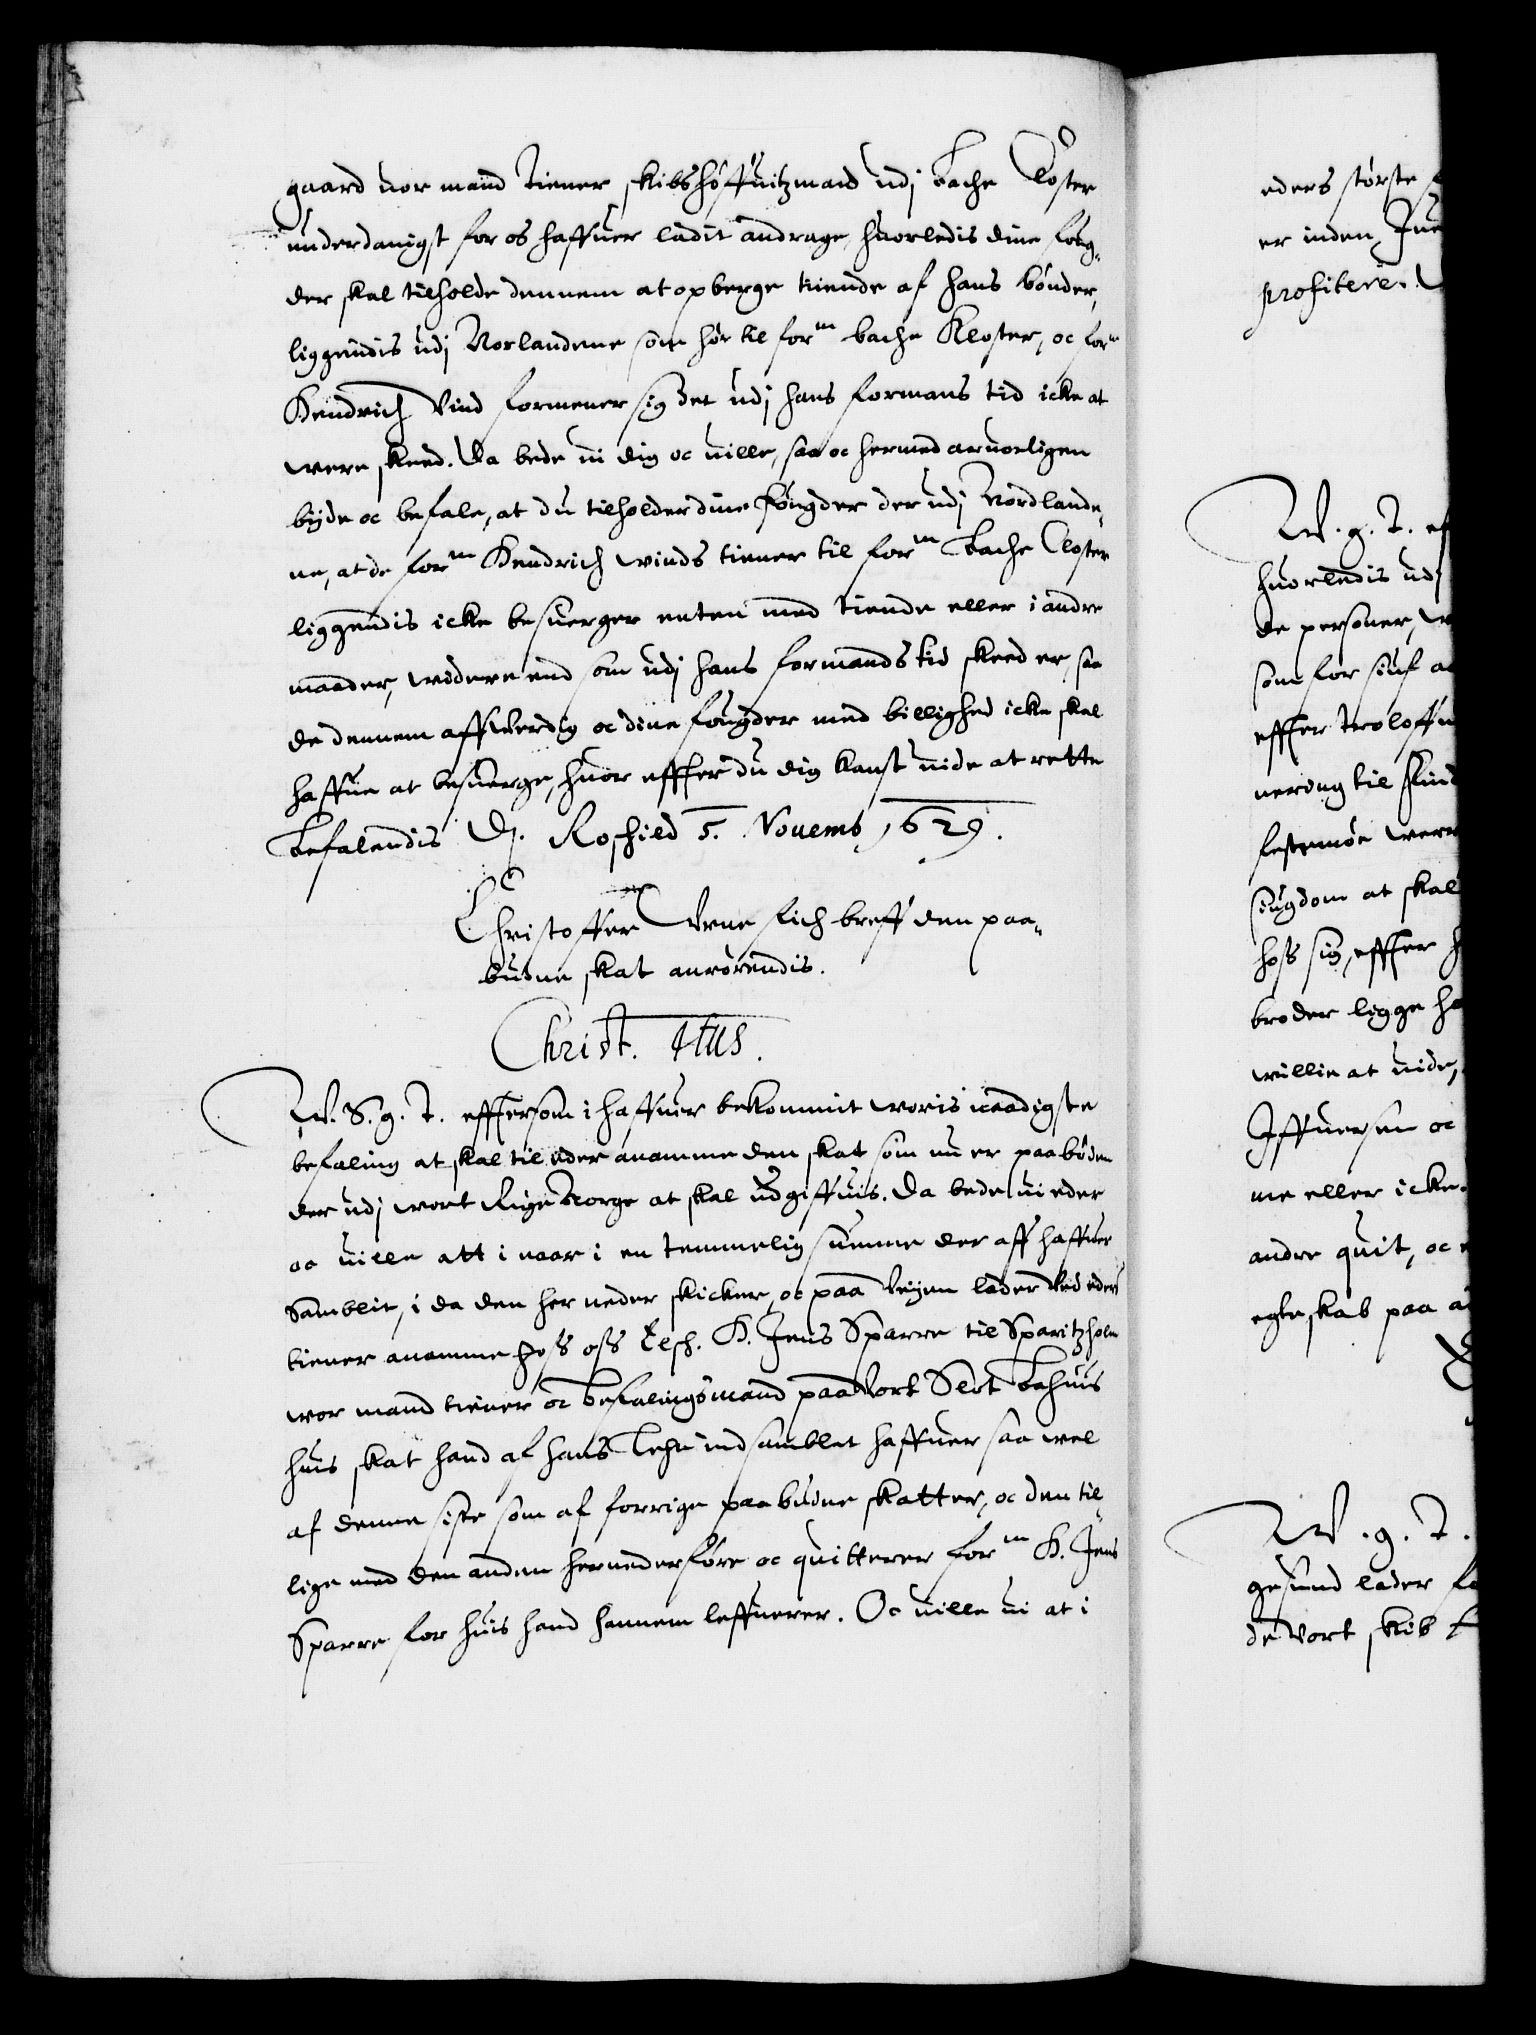 gaard vor mand tiener skibshøffuitzmand udj Bache Closter
underdanigst for os haffuer ladit andrage, huorledis dine foug-
der skal tilholde dennem at opberge tiende af hans bønder,
liggendis udj Norlandene som hør til forn bache Kloster, oc forn
Hendrich Vind formener sig det udj hans formans tid icke at
were skeed. Da bede vi dig oc ville, saa oc hermed aruorligen
byde oc befale, at du tilholder dine fougder der udj Nordlande-
ne, at de forn Hendrich vinds tiener til forn Bache Closter
liggendis icke besuerger enten med tiende eller i andre
maader, widere end som udj hans formands tid skeed er, saa
de dennem offuer dig oc dine fougder med billighed icke skal
haffue at besuerge, huor effter du dig kanst vide at rette
Befalendis D. Roschild 5. Nouemb 1629.
Christoffer Vrne fich breff den paa-
budne skat anrørendis.
Christ. 4tus.
W. S. g. T. effterson i haffuer bekommit woris naadigste
befaling at skal til eder anamme den skat som nu er paabøden
der udj wort Rige Norge at skal udgiffuis. Da bede vi eder
oc ville att i naar i en temmelig summe der aff haffuer
Samblit, i da den her neder skicker, oc paa Veyen lader ved eders
tiener anamme hoss oss Elsch. H. Jens Sparre til Sparitzholm
wor mand tiener oc Befalingsmand paa Vort Slot Bahuus
huis skat hand af hans Lehn indsamblet haffuer saa wel
af denne siste som af forrige paabudne skatter, oc den til
lige med den anden herneder føre oc quitterer forn H. Jens
Sparre for huis hand hannem leffuerer. Oc ville vi at i
eders største
er inden
profitere.
W. g. T.
huorledis udj
de personer,
som for
effter troloffu
nering til
festemøe were
siugdom at skal
hoss sig, effter
broder ligge
willie at vide,
Iffuersen oc
me eller icke.
andre quit, oc
egteskab paa
W. g. T.
gesund lader
de Vort skib